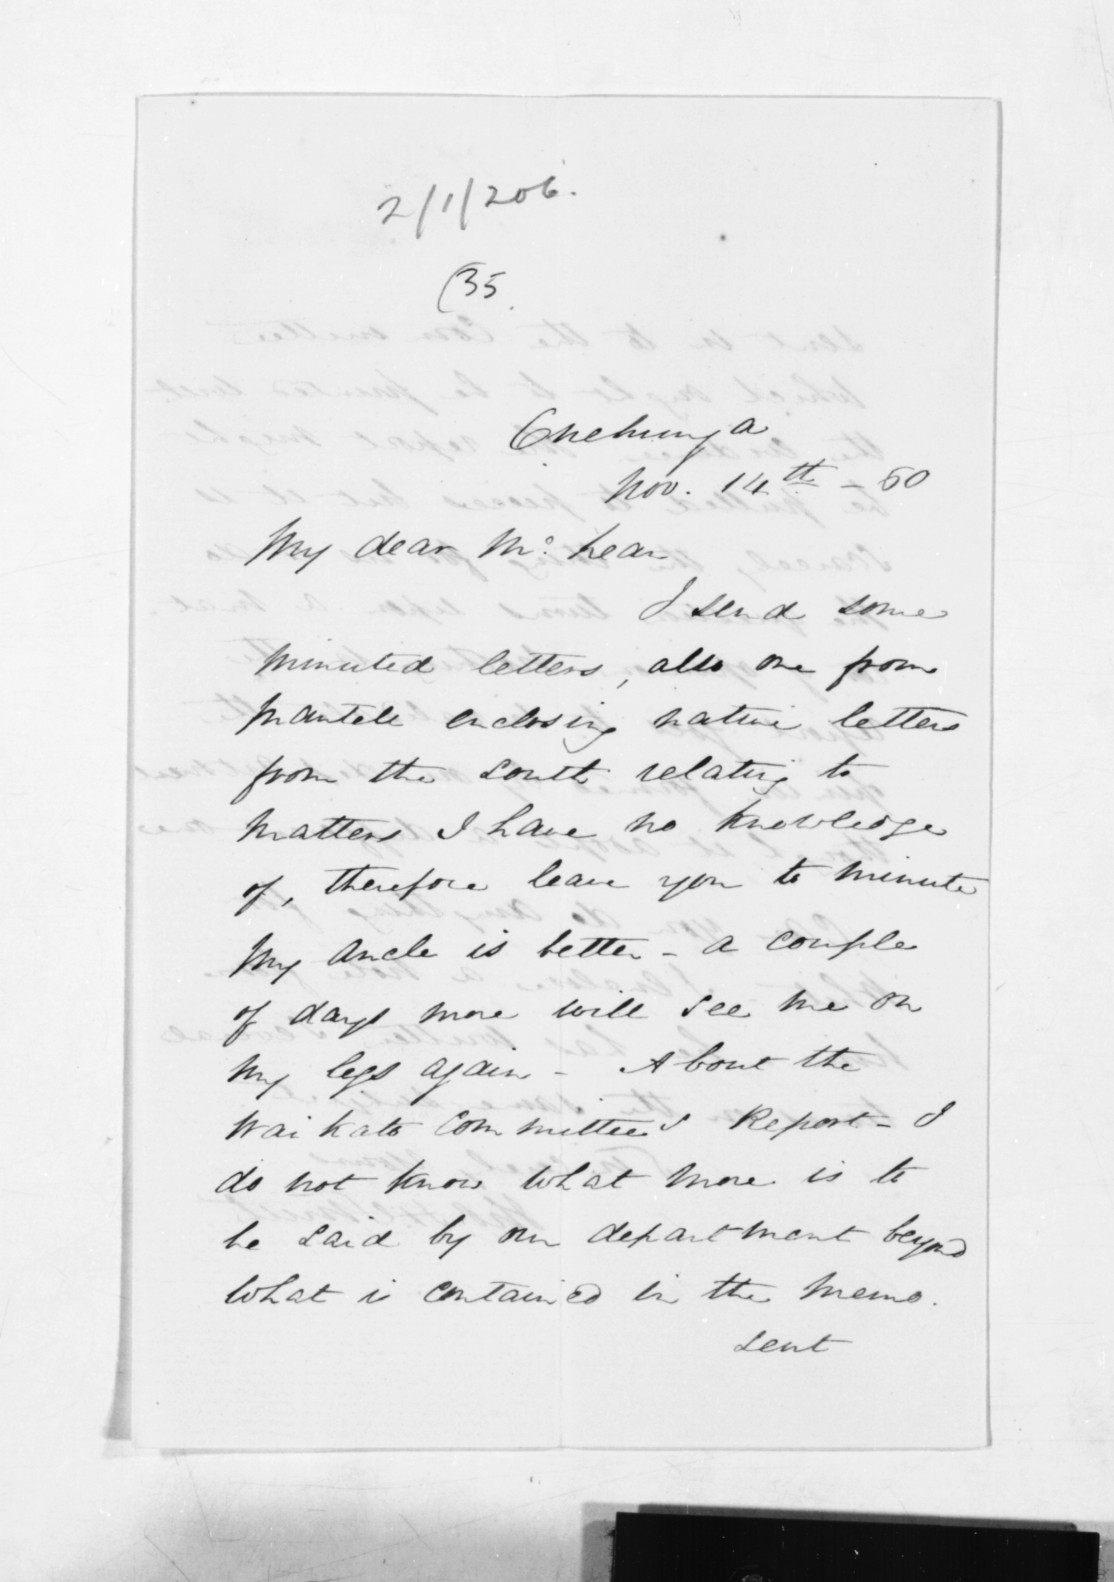 2/1/206.
(35
Onehunga
Nov. 14th - 60
My dear Mc. Lean
I send some
minuted letters, also one from
Mantell enclosing native letters
from the South relating to
matters I have no knowledge
of, therefore leave you to minute
My ancle is better - a couple
of days more will see me on
my legs again - About the
Waikato Committees Report - I
do not know what more is to
be said by our department beyond
what is contained in the memo.
sent